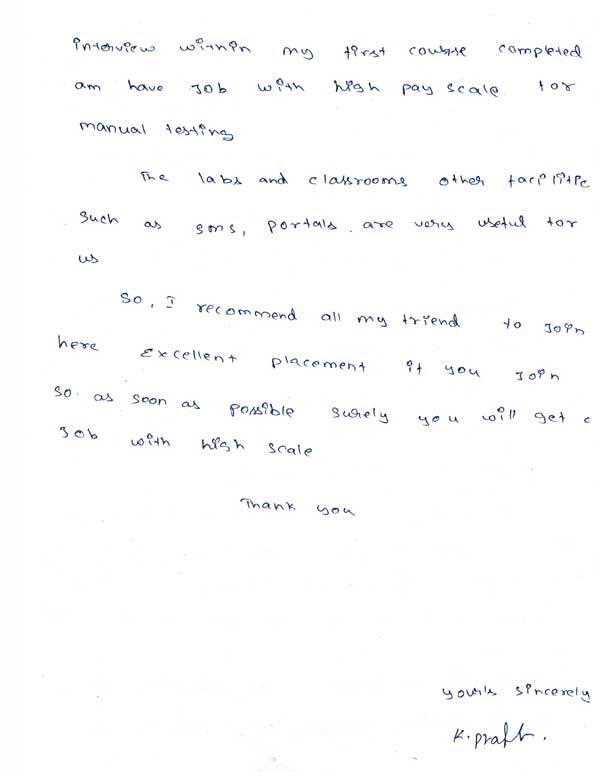 interview within my first course completed
am have Job with high pay scale for
manual testing
The labs and classrooms other facilitie
such as sms, portals. are very useful for
us
So, I recommend all my friend to Join
here Excellent placement if you Join
so. as soon as possible surely you will get a
Job with high scale
Thank you
your's sincerely
K.